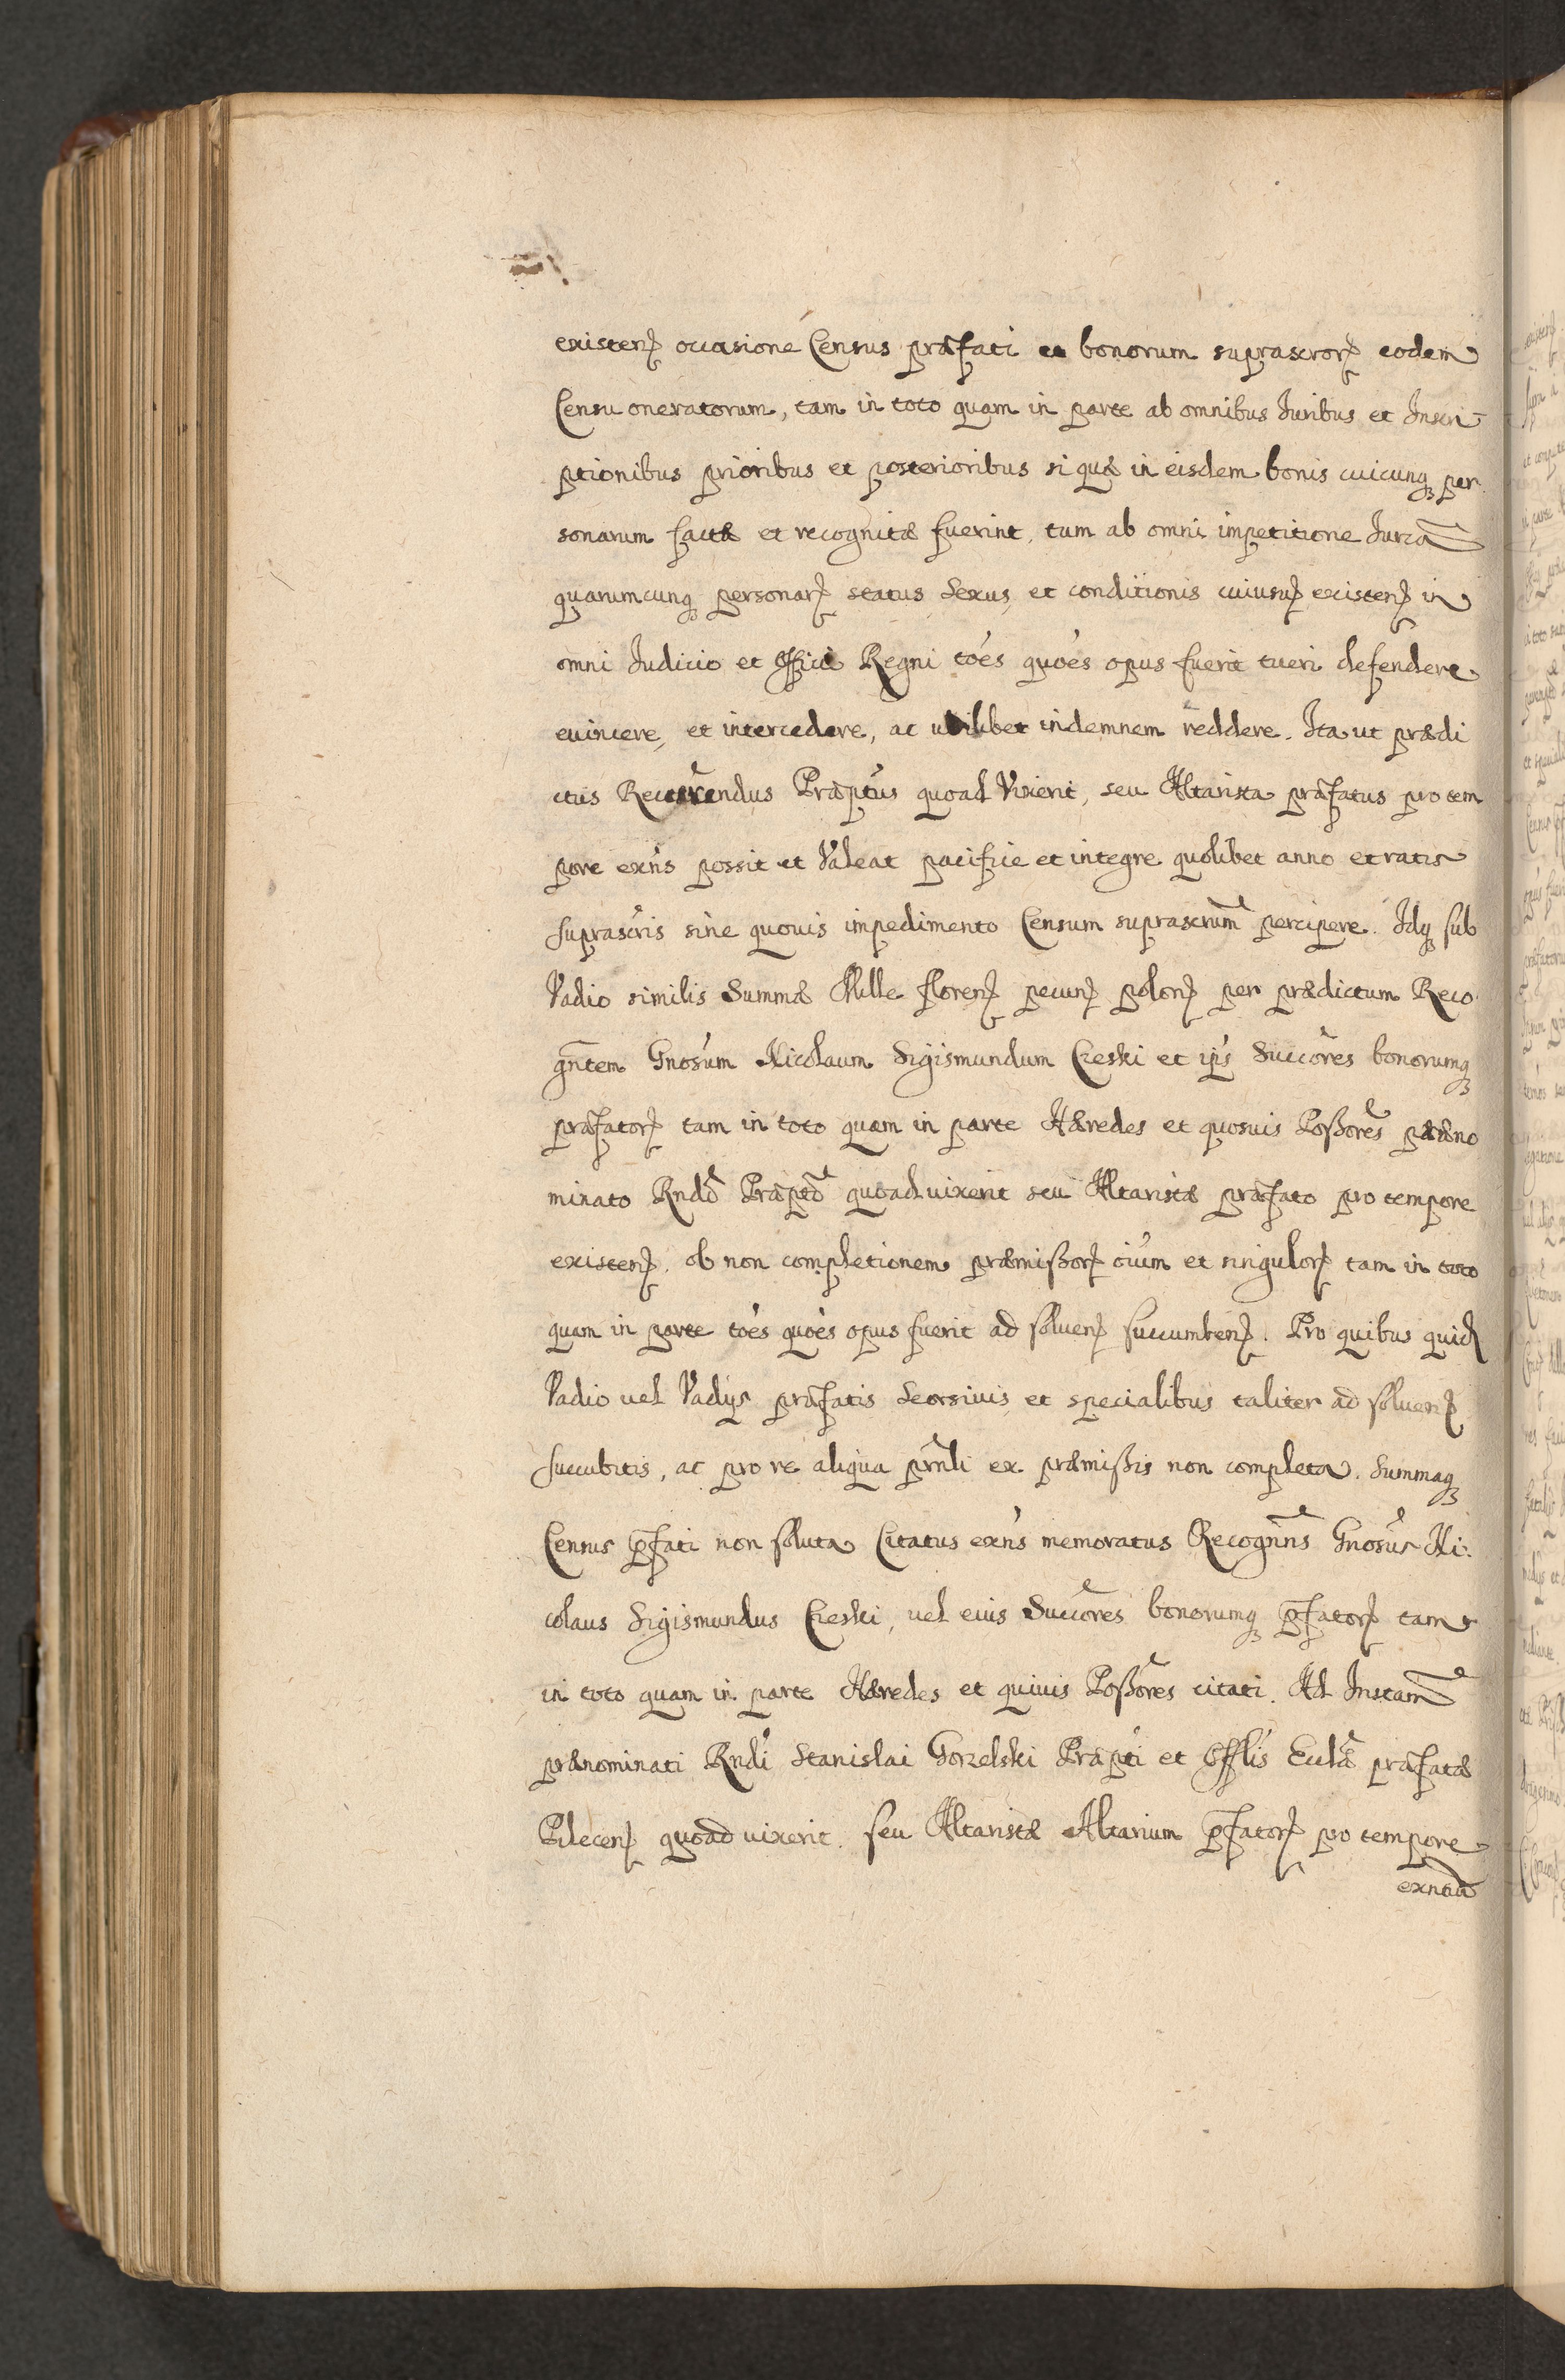 existenꝭ occasione Census præfati et bonorum suprascrorꝭ eodem
Censu oneratorum, tam in toto quam in parte ab omnibus Iuribus et Inscri-
ptionibus prioribus et posterioribus si quæ in eisdem bonis cuicunqꝫ per
sonarum factæ et recognitæ fuerint, tum ab omni impetitione Iurca
quarumcunqꝫ personarꝭ status Sexus et conditionis cuiusuꝭ existenꝭ in
omni Iudicio et Officio Regni toés quoés opus fuerit tueri defendere
euincere, et intercedere, ac utilibet indemnem reddere. Ita ut prædi
ctus Reuerendus Præptus quoad Vixerit, seu Altarista præfatus pro tem
pore exns possit et Valeat pacifice et integre quolibet anno et ratis
suprascris sine quouis impedimento Censum suprascrum percipere. Idqꝫ sub
Vadio similis Summæ Mille florenꝭ pecunꝭ polonꝭ per prædictum Reco
gntem Gnosum Nicolaum Sigismundum Czeski et ips Succres bonorumqꝫ
præfatorꝭ tam in toto quam in parte Hæredes et quosuis Poßores præno
minato Rndo Præpto quoad uixerit seu Altaristæ præfato pro tempore
existenꝭ. ob non completionem præmißorꝭ oium et singulorꝭ tam in toto
quam in parte toés quoés opus fuerit ad soluenꝭ succumbenꝭ. Pro quibus quidꝭ
Vadio uel Vadijs præfatis Seorsiuis et specialibus taliter ad soluenꝭ
succubitis, ac pro re aliqua prnli ex præmißis non completa. Summaqꝫ
Census pfati non soluta Citatus exns memoratus Recognns Gnosus Ni:
colaus Sigismundus Czeski, uel eius Succres bonorumqꝫ pfatorꝭ tam
in toto quam in parte Hæredes et quiuis Poßores citati. Ad Instam
prænominati Rndi Stanislai Gorzelski Præpti et Offlis Eculæ præfatæ
Pilecenꝭ quoad uixerit. seu Altaristæ Altarium pfatorꝭ pro tempore
exntia